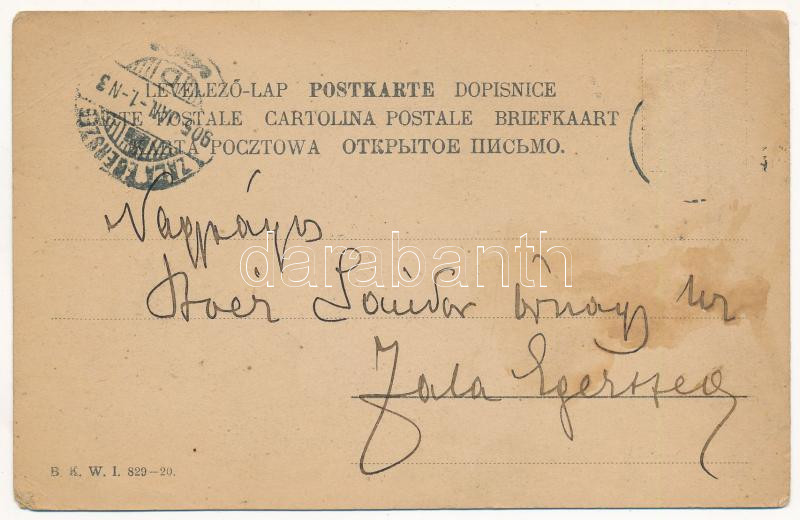 LEVELEZŐ-LAP POSTKARTE DOPISNICE
POSTALE CARTOLINA POSTALE BRIEFKAART
POCZTOWA ОТКРЫТОЕ ПИСЬМО.
ZALA EGERSZEG
905 JAN -1 -N3
D
Sándor őrnagy úr
Zala Egerszeg
darabanth
B. K. W. I. 829-20.